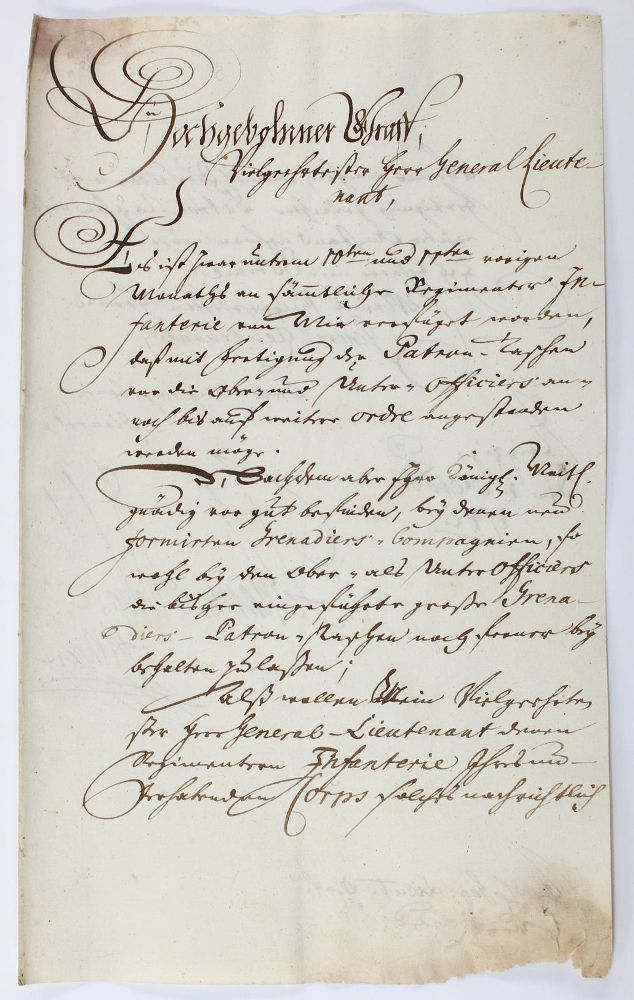 Hochgebohrner Graff,
Vielgeehrtester Herr General Lieute-
nant,
Es ist zwar unterm 10ten und 11ten vorigen
Monaths an sämmtliche Regimenter In-
fanterie von Mir verfüget worden,
daß mit Fertigung der Patron-Taschen
vor die Ober- und Unter-Officiers an-
noch bis auf weitere Ordre angestanden
werden möge.
Nachdem aber Ihro Königl. Maÿt.
gnädig vor gut befinden, bey denen neu
formirten Grenadiers-Compagnien, so
wohl bey den Ober- als Unter Officiers
die bisher eingeführte große Grena-
diers-Patron-Taschen noch ferner bey
behalten zu laßen;
Alß wollen Mein Vielgeehrte-
ster Herr General-Lieutenant denen
Regimentern Infanterie Ihres un-
terhabenden Corps solches nachrichtlich